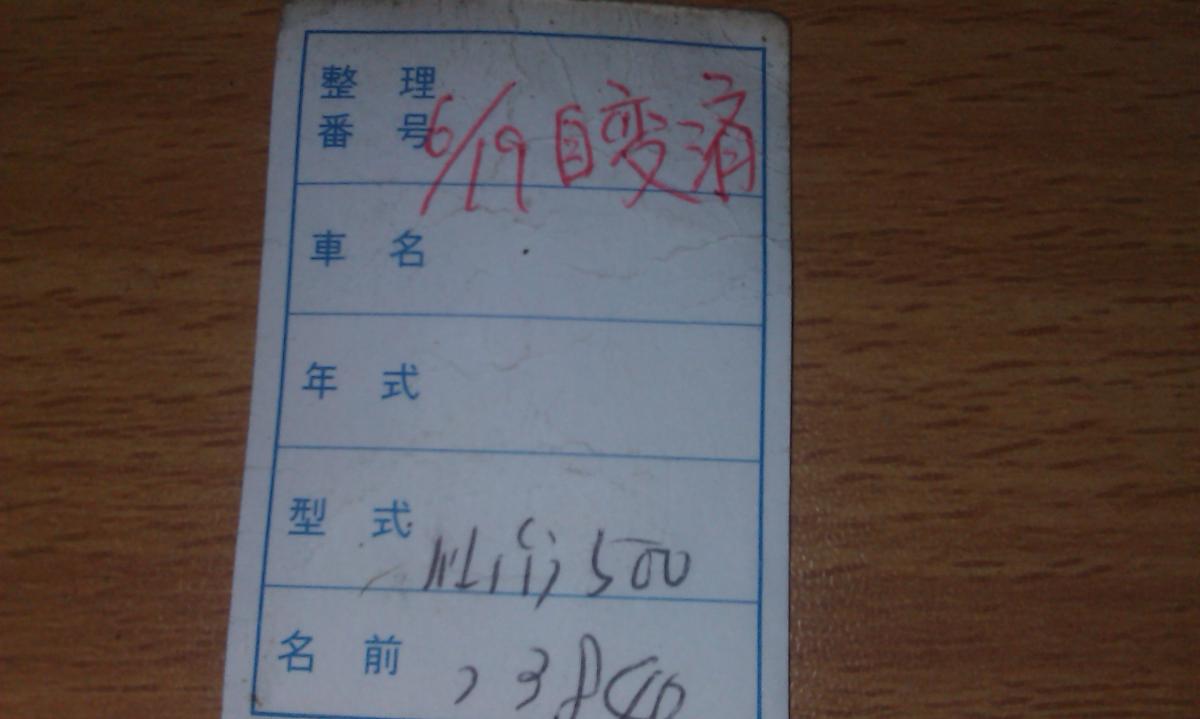 整理
番号 6/19 自変済
車名
年式
型式 500
名前